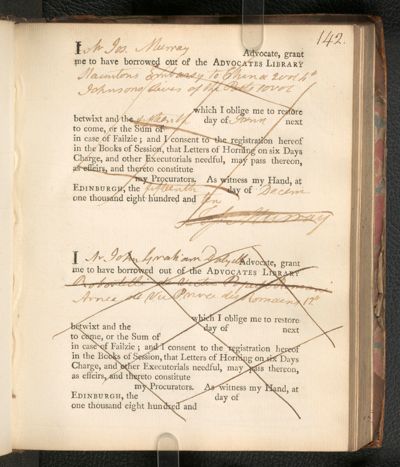 142.
I Mr Jas. Murray Advocate, grant
me to have borrowed out of the ADVOCATES LIBRARY
Embassy to China 2 vol 4o
Johnsons Lives of the Poets vol
which I oblige me to restore
betwixt and the day of next
to come, or the Sum of
in case of Failzie; and I consent to the registration hereof
in the Books of Session, that Letters of Horning on six Days
Charge, and other Executorials needful, may pass thereon,
as effeirs, and thereto constitute
my Procurators. As witness my Hand, at
EDINBURGH, the fifteenth day of Decem
one thousand eight hundred and ten
Murray
I Mr John Graham Dalyell Advocate, grant
me to have borrowed out of the ADVOCATES LIBRARY
de
which I oblige me to restore
betwixt and the day of next
to come, or the Sum of
in case of Failzie; and I consent to the registration hereof
in the Books of Session, that Letters of Horning on six Days
Charge, and other Executorials needful, may pass thereon,
as effeirs, and thereto constitute
my Procurators. As witness my Hand, at
EDINBURGH, the day of
one thousand eight hundred and